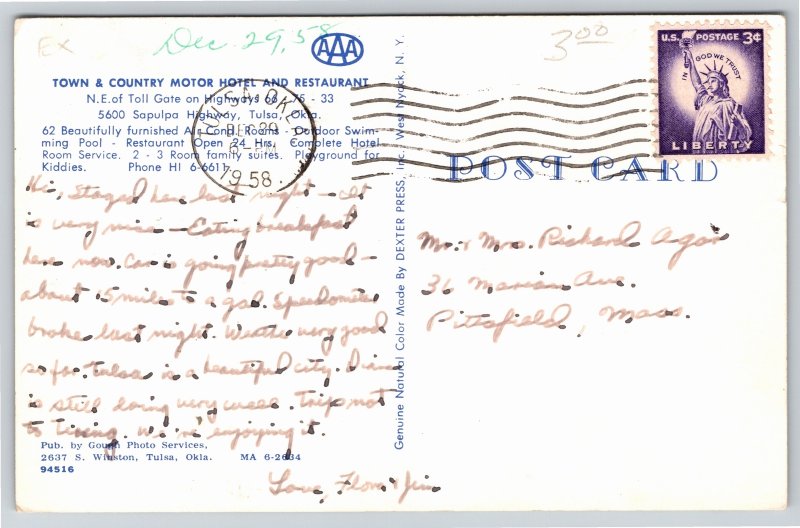 EX
Dec. 29, 58
AAA
3.00
U.S. POSTAGE 3¢
IN GOD WE TRUST
LIBERTY
TOWN & COUNTRY MOTOR HOTEL AND RESTAURANT
N.E. of Toll Gate on Highways 66 - 75 - 33
5600 Sapulpa Highway, Tulsa, Okla.
62 Beautifully furnished Air Cond. Rooms - Outdoor Swim-
ming Pool - Restaurant Open 24 Hrs. Complete Hotel
Room Service. 2 - 3 Room family suites. Playground for
Kiddies. Phone HI 6-6611
TULSA, OKLA.
DEC 29
1958
POST CARD
Hi, Stayed here last night - it
is very nice - Eating breakfast
here now. Car is going pretty good -
about 15 miles to a gal. Speedometer
broke last night. Weather very good
so far. Tulsa is a beautiful city.
is still very well. Trip not
to tiring. We're enjoying it.
Love, Flora & Jim
Mr. & Mrs. Richard Agar
36 Marian Ave.
Pittsfield, Mass.
Pub. by Gough Photo Services,
2637 S. Winston, Tulsa, Okla. MA 6-2634
94516
Genuine Natural Color Made By DEXTER PRESS, Inc., West Nyack, N. Y.